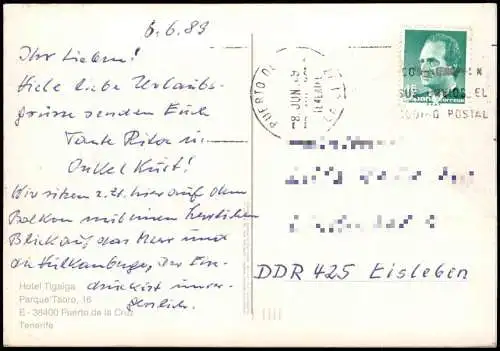 6.6.89
Ihr Lieben!
Viele liebe Urlaubs-
grüsse senden Euch
Tante Rita u.
Onkel Kurt!
Wir sitzen z. Zt. hier auf dem
Balkon mit einem herrlichen
Blick auf das Meer und
die Vulkanberge, Der Ein-
druck ist unver-
gesslich.
Hotel Tigaiga
Parque Taoro, 16
E - 38400 Puerto de la Cruz
Tenerife
PUERTO DE
8 JUN
TENERIFE
CODIGO POSTAL
DDR 425 Eisleben